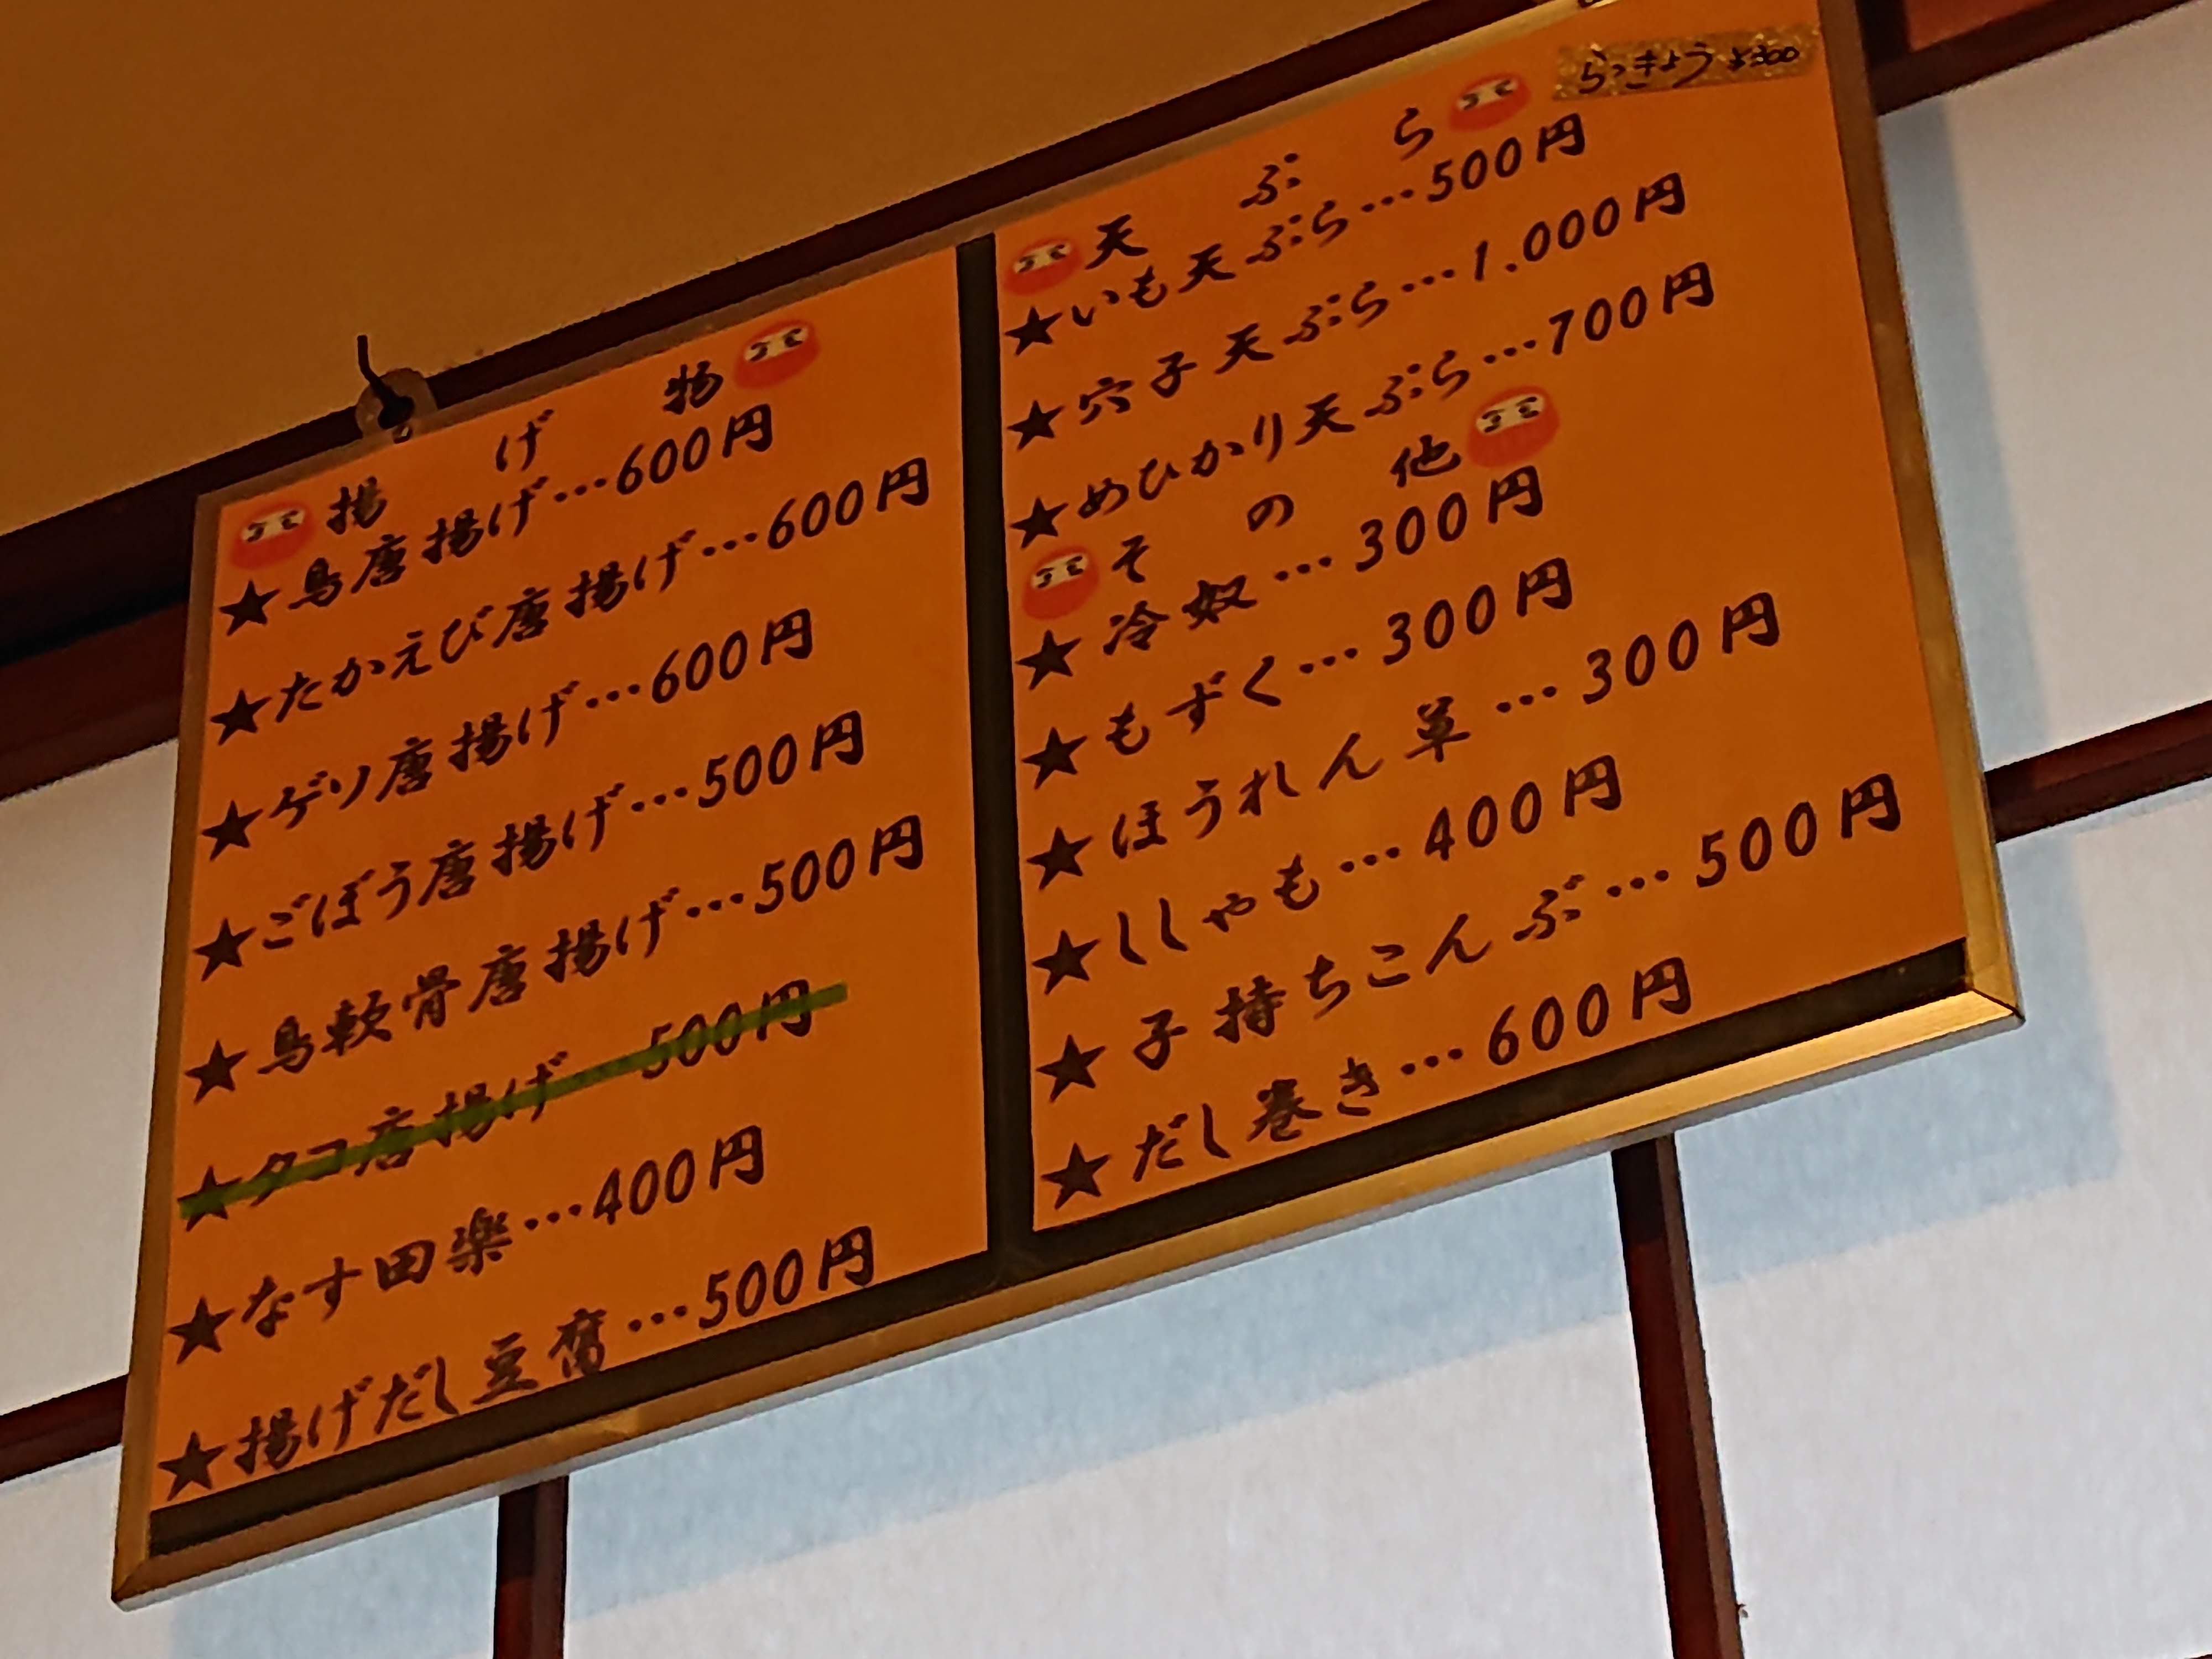 揚げ物
★鳥唐揚げ…600円
★たかえび唐揚げ…600円
★ゲソ唐揚げ…600円
★ごぼう唐揚げ…500円
★鳥軟骨唐揚げ…500円
★タコ唐揚げ…500円
★なす田楽…400円
★揚げだし豆腐…500円
らっきょう ¥300
天ぷら
★いも天ぷら…500円
★穴子天ぷら…1.000円
★めひかり天ぷら…700円
その他
★冷奴…300円
★もずく…300円
★ほうれん草…300円
★ししゃも…400円
★子持ちこんぶ…500円
★だし巻き…600円